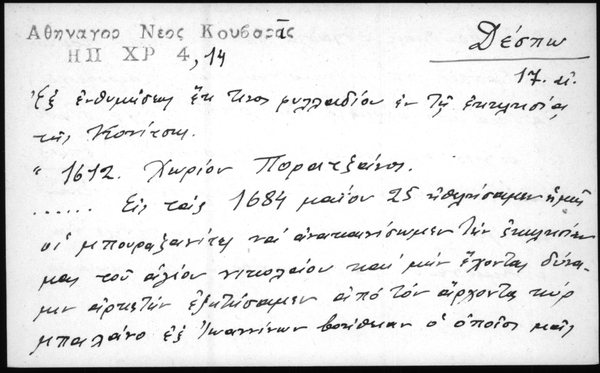 Αθηναγορ Νεος Κουβαρᾶς
ΗΠ ΧΡ 4, 14
Δέσπω
17. αἰ.
Ἐξ ἐνθυμίσεως ἔκ τινος φυλλαδίου ἐν τῇ ἐκκλησίᾳ
τῆς Κονίτσης.
" 1612. Χωρίον
...... Εἰς τούς 1684 μαΐου 25 ἠθελήσαμεν ἡμεῖς
οἱ μπουραζανίτες νά ἀνακαινίσωμεν τὴν ἐκκλησίαν
μας τοῦ ἁγίου νικολάου καί μήν ἔχοντας δύνα-
μιν ἀρκετήν ἐζητήσαμεν ἀπό τόν ἄρχοντα κύρ
μπαλάνο ἐξ Ἰωαννίνων βοήθειαν ὁ ὁποῖος μᾶς